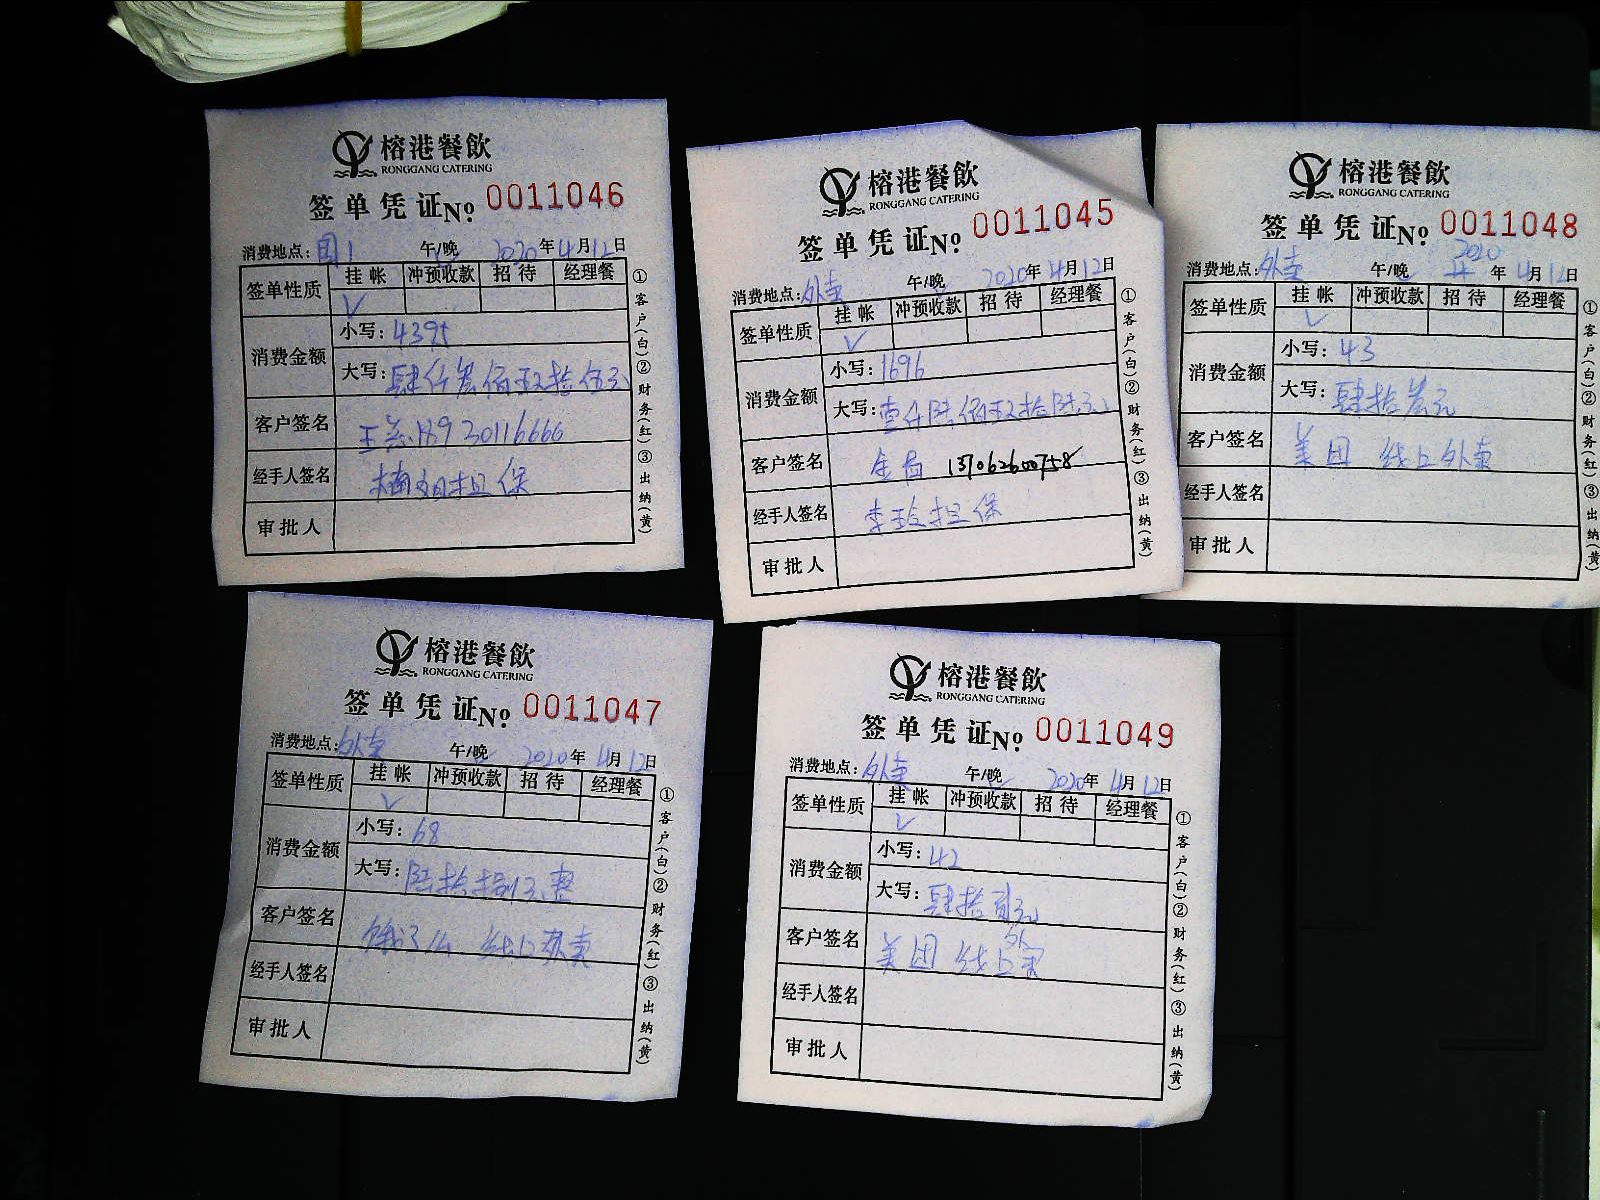 榕港餐飲
RONGGANG CATERING
签单凭证No. 0011046
消费地点: 午/晚 2020年4月12日
签单性质 挂帐 冲预收款 招待 经理餐
√
消费金额 小写: 4395
大写: 肆仟叁佰玖拾伍元
客户签名
经手人签名 担保
审批人
①客户(白)②财务(红)③出纳(黄)
榕港餐飲
RONGGANG CATERING
签单凭证No. 0011045
消费地点: 外卖 午/晚 2020年4月12日
签单性质 挂帐 冲预收款 招待 经理餐
√
消费金额 小写: 1696
大写: 壹仟陆佰玖拾陆元
客户签名 13706260758
经手人签名 李玲担保
审批人
①客户(白)②财务(红)③出纳(黄)
榕港餐飲
RONGGANG CATERING
签单凭证No. 0011048
2020
消费地点: 外卖 午/晚 年4月12日
签单性质 挂帐 冲预收款 招待 经理餐
√
消费金额 小写: 43
大写: 肆拾叁元
客户签名 美团 线上外卖
经手人签名
审批人
①客户(白)②财务(红)③出纳(黄)
榕港餐飲
RONGGANG CATERING
签单凭证No. 0011047
消费地点: 外卖 午/晚 2020年4月12日
签单性质 挂帐 冲预收款 招待 经理餐
√
消费金额 小写: 68
大写: 陆拾捌元整
客户签名 线上外卖
经手人签名
审批人
①客户(白)②财务(红)③出纳(黄)
榕港餐飲
RONGGANG CATERING
签单凭证No. 0011049
消费地点: 外卖 午/晚 2020年4月12日
签单性质 挂帐 冲预收款 招待 经理餐
√
消费金额 小写: 42
大写: 肆拾贰元
客户签名 美团 线上外卖
经手人签名
审批人
①客户(白)②财务(红)③出纳(黄)